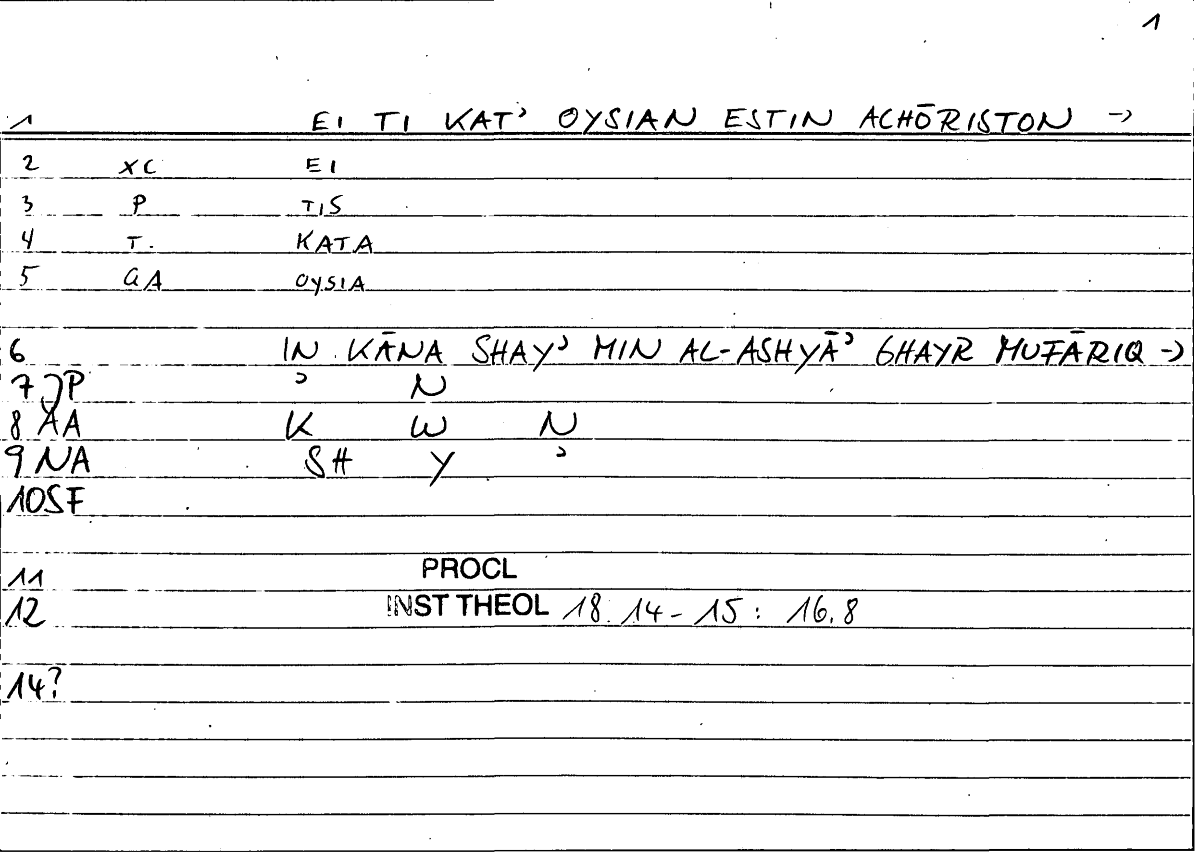 1
1 EI TI KAT' OYSIAN ESTIN ACHŌRISTON →
2 XC EI
3 P TIS
4 T. KATA
5 GA OYSIA
6 IN KĀNA SHAYʾ MIN AL-ASHYĀʾ GHAYR MUFĀRIQ →
7 JP ʾ N
8 AA K W N
9 NA SH Y ʾ
10 SF
11 PROCL
12 INST THEOL 18.14-15: 16.8
14?